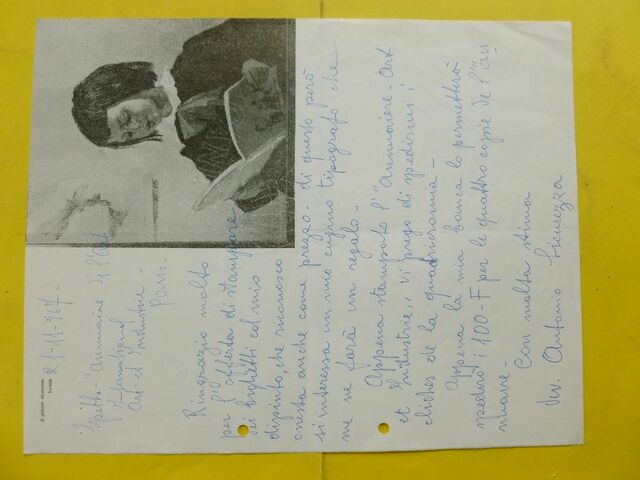 21-11-967-
Spett. "Annuaire de l'Art
International
Art et Industrie -
Paris.
Ringrazio molto
per l'offerta di stampare
dei biglietti col mio
dipinto, che riconosco
onesta anche come prezzo. di questo però
si interessa un mio cugino tipografo che
me ne farà un regalo -
Appena stampato l'"Annuaire - Art
et Industrie" vi prego di spedirmi i
cliches de la quadricromia -
Appena la mia banca lo permetterà
spedirò i 100-F per le quattro copie de l'"an
nuaire -
Con molta stima
dev. Antonio Sicurezza